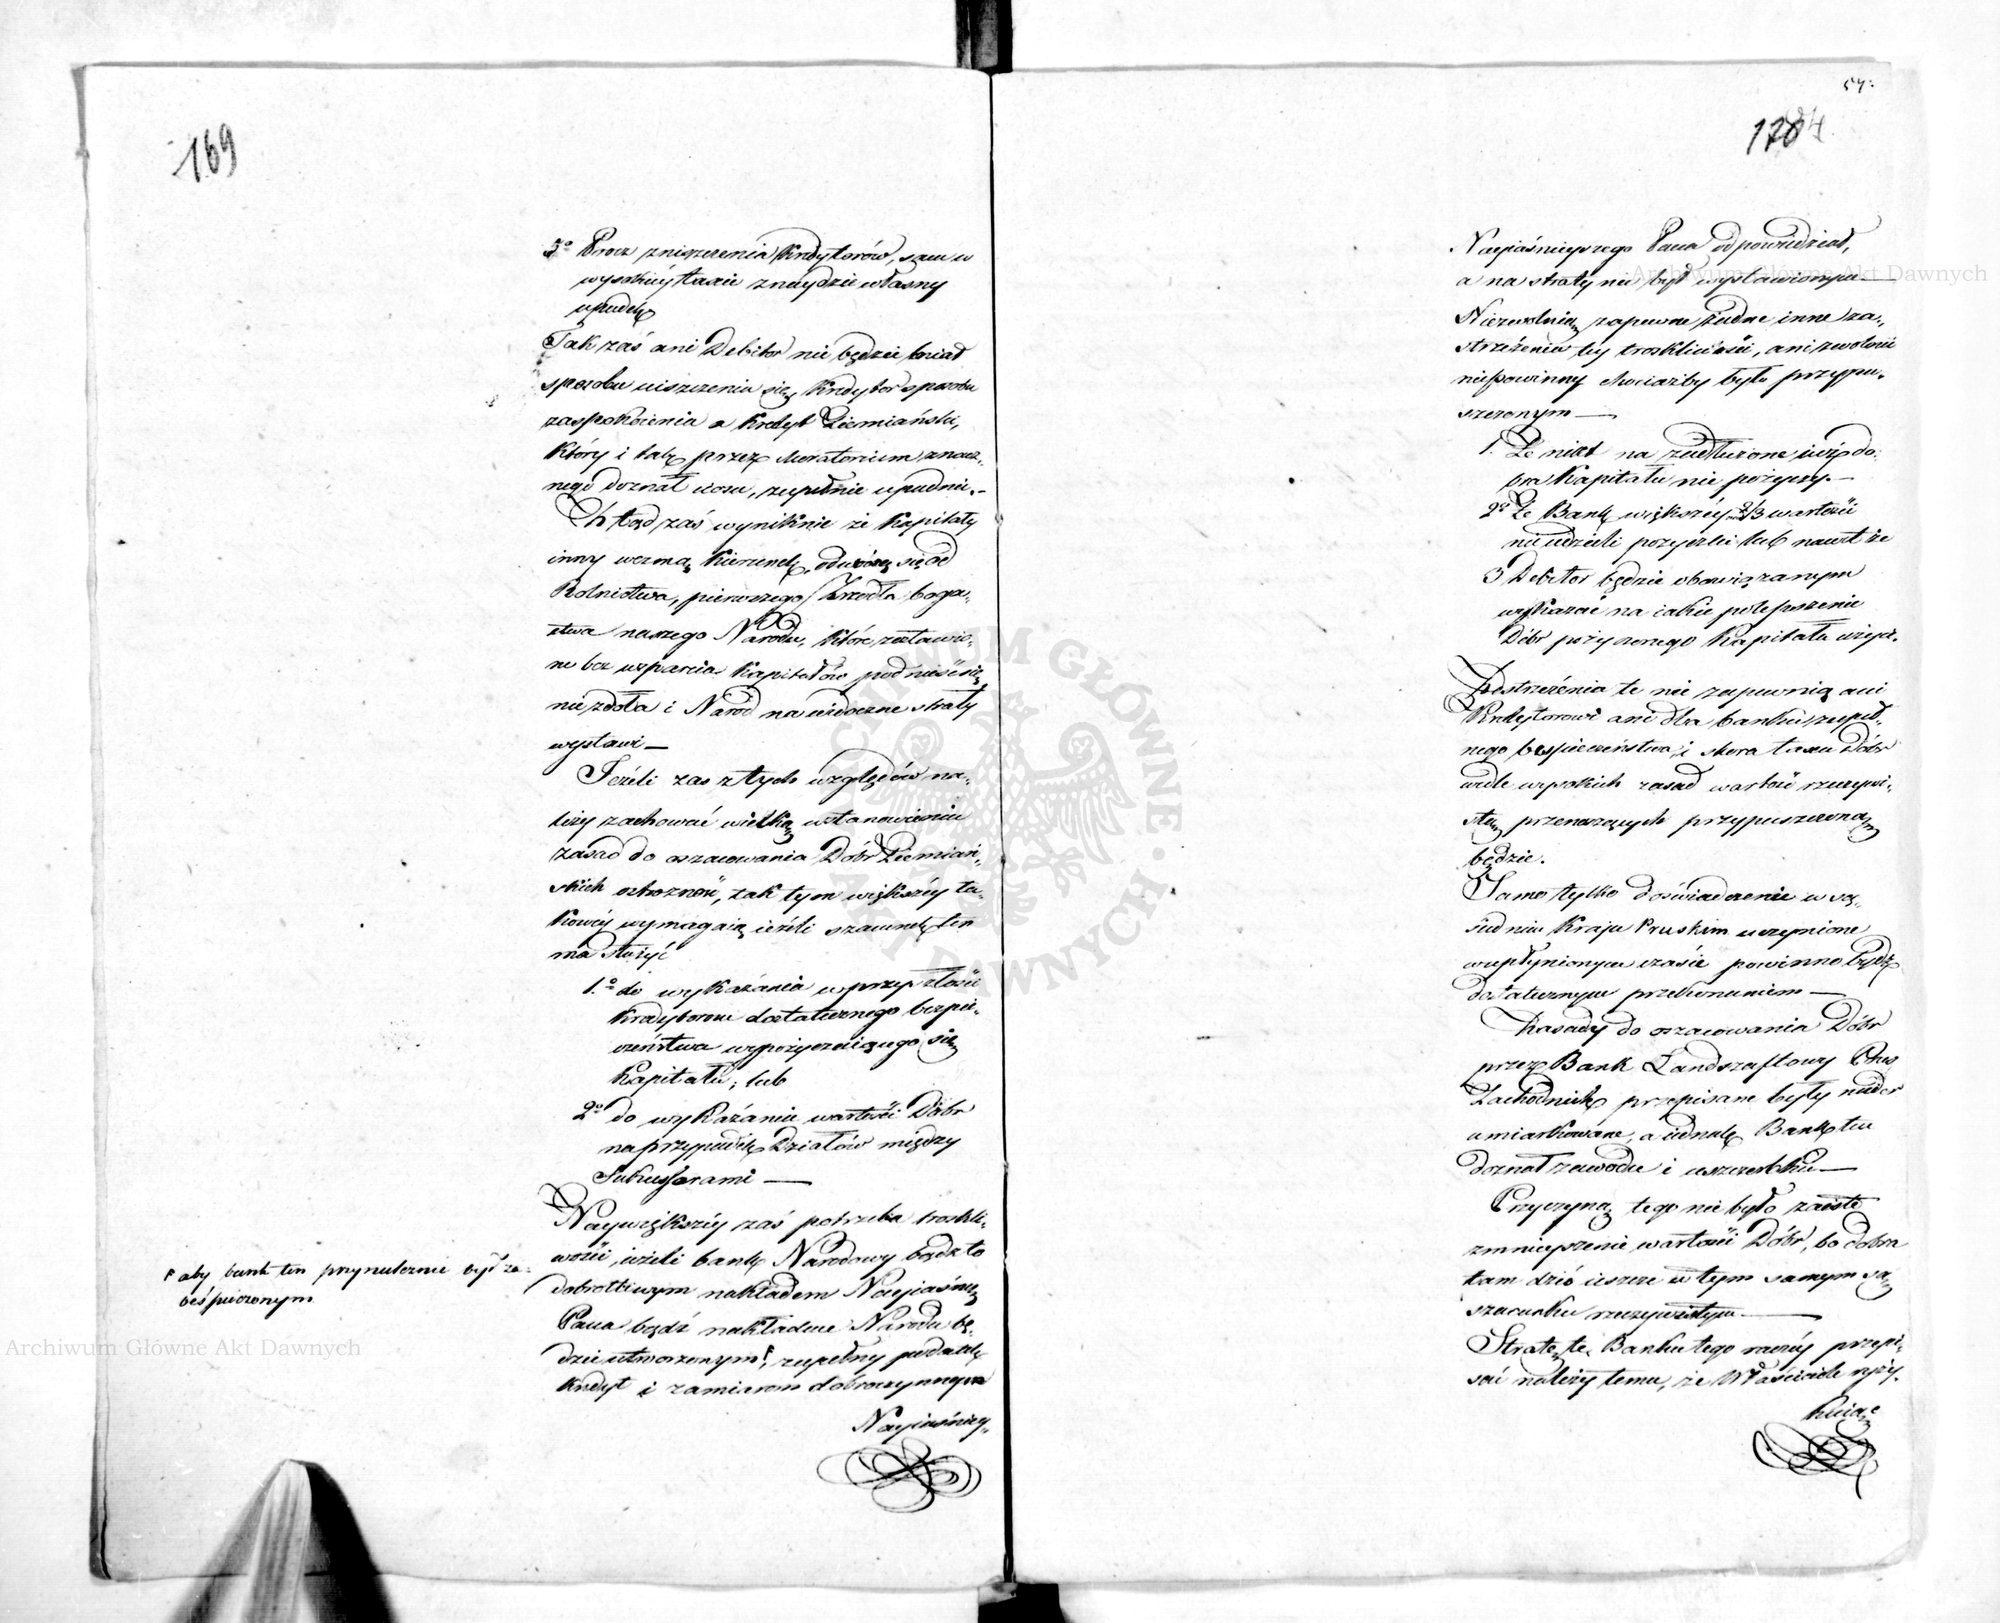 169
5º Prócz zniszczenia Kredytorów, sam w
wysokiéy taxie znaydzie własny
upadek
Tak zaś ani Debitor nie będzie miał
sposobu uiszczenia się, Kredytor sposobu
zaspokoienia a Kredyt Ziemiański,
który i tak przez Moratorium znacz-
nego doznał ciosu, zupełnie upadnie.-
Ztąd zaś wyniknie że Kapitały
inny wezmą kierunek, odwrócą się od
Rolnictwa, pierwszego Zrzódła boga-
ctwa naszego Narodu, które zostawio-
ne bez wsparcia Kapitałów podnieść się
nie zdoła i Naród na widoczne straty
wystawi —
Jeżeli zaś z tych względów na-
leży zachować wielką w stanowieniu
zasad do oszacowania Dóbr Ziemiań-
skich ostrożność, tak tym większéy ta-
kowéy wymagaią ieżeli szacunek ten
ma służyć
1.º do wykazania w przyszłości
Kredytorom dostatecznego bezpie-
czeństwa wypożyczaiącego się
Kapitału; lub
2º do wykazania wartości Dóbr
na przypadek Działów między
Sukcessorami —
Naywiększéy zaś potrzeba troskli-
wości, ieżeli bank Narodowy bądź to
dobrotliwym nakładem Nayiaśn:
Pana bądź nakładem Narodu bę-
dzie utworzonym, zupełny podatek
Kredyt i zamiarom dobroczynnym
Nayiaśniey-
aby bank ten przynależnie był za-
beśpieczonym
Archiwum Główne Akt Dawnych
57.
170
Nayiaśnieyszego Pana odpowiedział,
a na straty nie był wystawionym —
Niezwolnią zapewne żadne inne za-
strzeżenia tey troskliwości, ani zwolnić
nie powinny chociażby było przypu-
szczonym —
1. Że nikt na zadłużone iuż do-
bra Kapitału nie pożyczy. —
2º Że Bank większéy nad 2/3 wartości
nie udzieli pożyczki lub nawet że
3 Debitor będzie obowiązanym
wykazać na iakie polepszenie
Dóbr pożyczonego Kapitału użyie.
Zastrzeżenia te nie zapewnią ani
Kredytorowi ani dla banku zupeł-
nego bezpieczeństwa, skoro taxa Dóbr
wedle wysokich zasad wartość rzeczywi-
stą przenoszących przypuszczoną
będzie.
Samo tylko doświadczenie w są-
siednim Kraju Pruskim uczynione
w upłynionym czasie powinno bydź
dostatecznym przekonaniem —
Zasady do oszacowania Dóbr
przez Bank Landszaftowy Prus
Zachodnich przepisane były nader
umiarkowane, a iednak Bank ten
doznał zawodu i uszczerbku —
Przyczyną tego nie było zaiste
zmnieyszenie wartości Dóbr, bo dobra
tam dziś ieszcze w tym samym są
szacunku rzeczywistym —
Stratę tę Banku tego raczéy przypi-
sać należy temu, że Właściciele
Archiwum Główne Akt Dawnych
ARCHIWUM GŁÓWNE AKT DAWNYCH